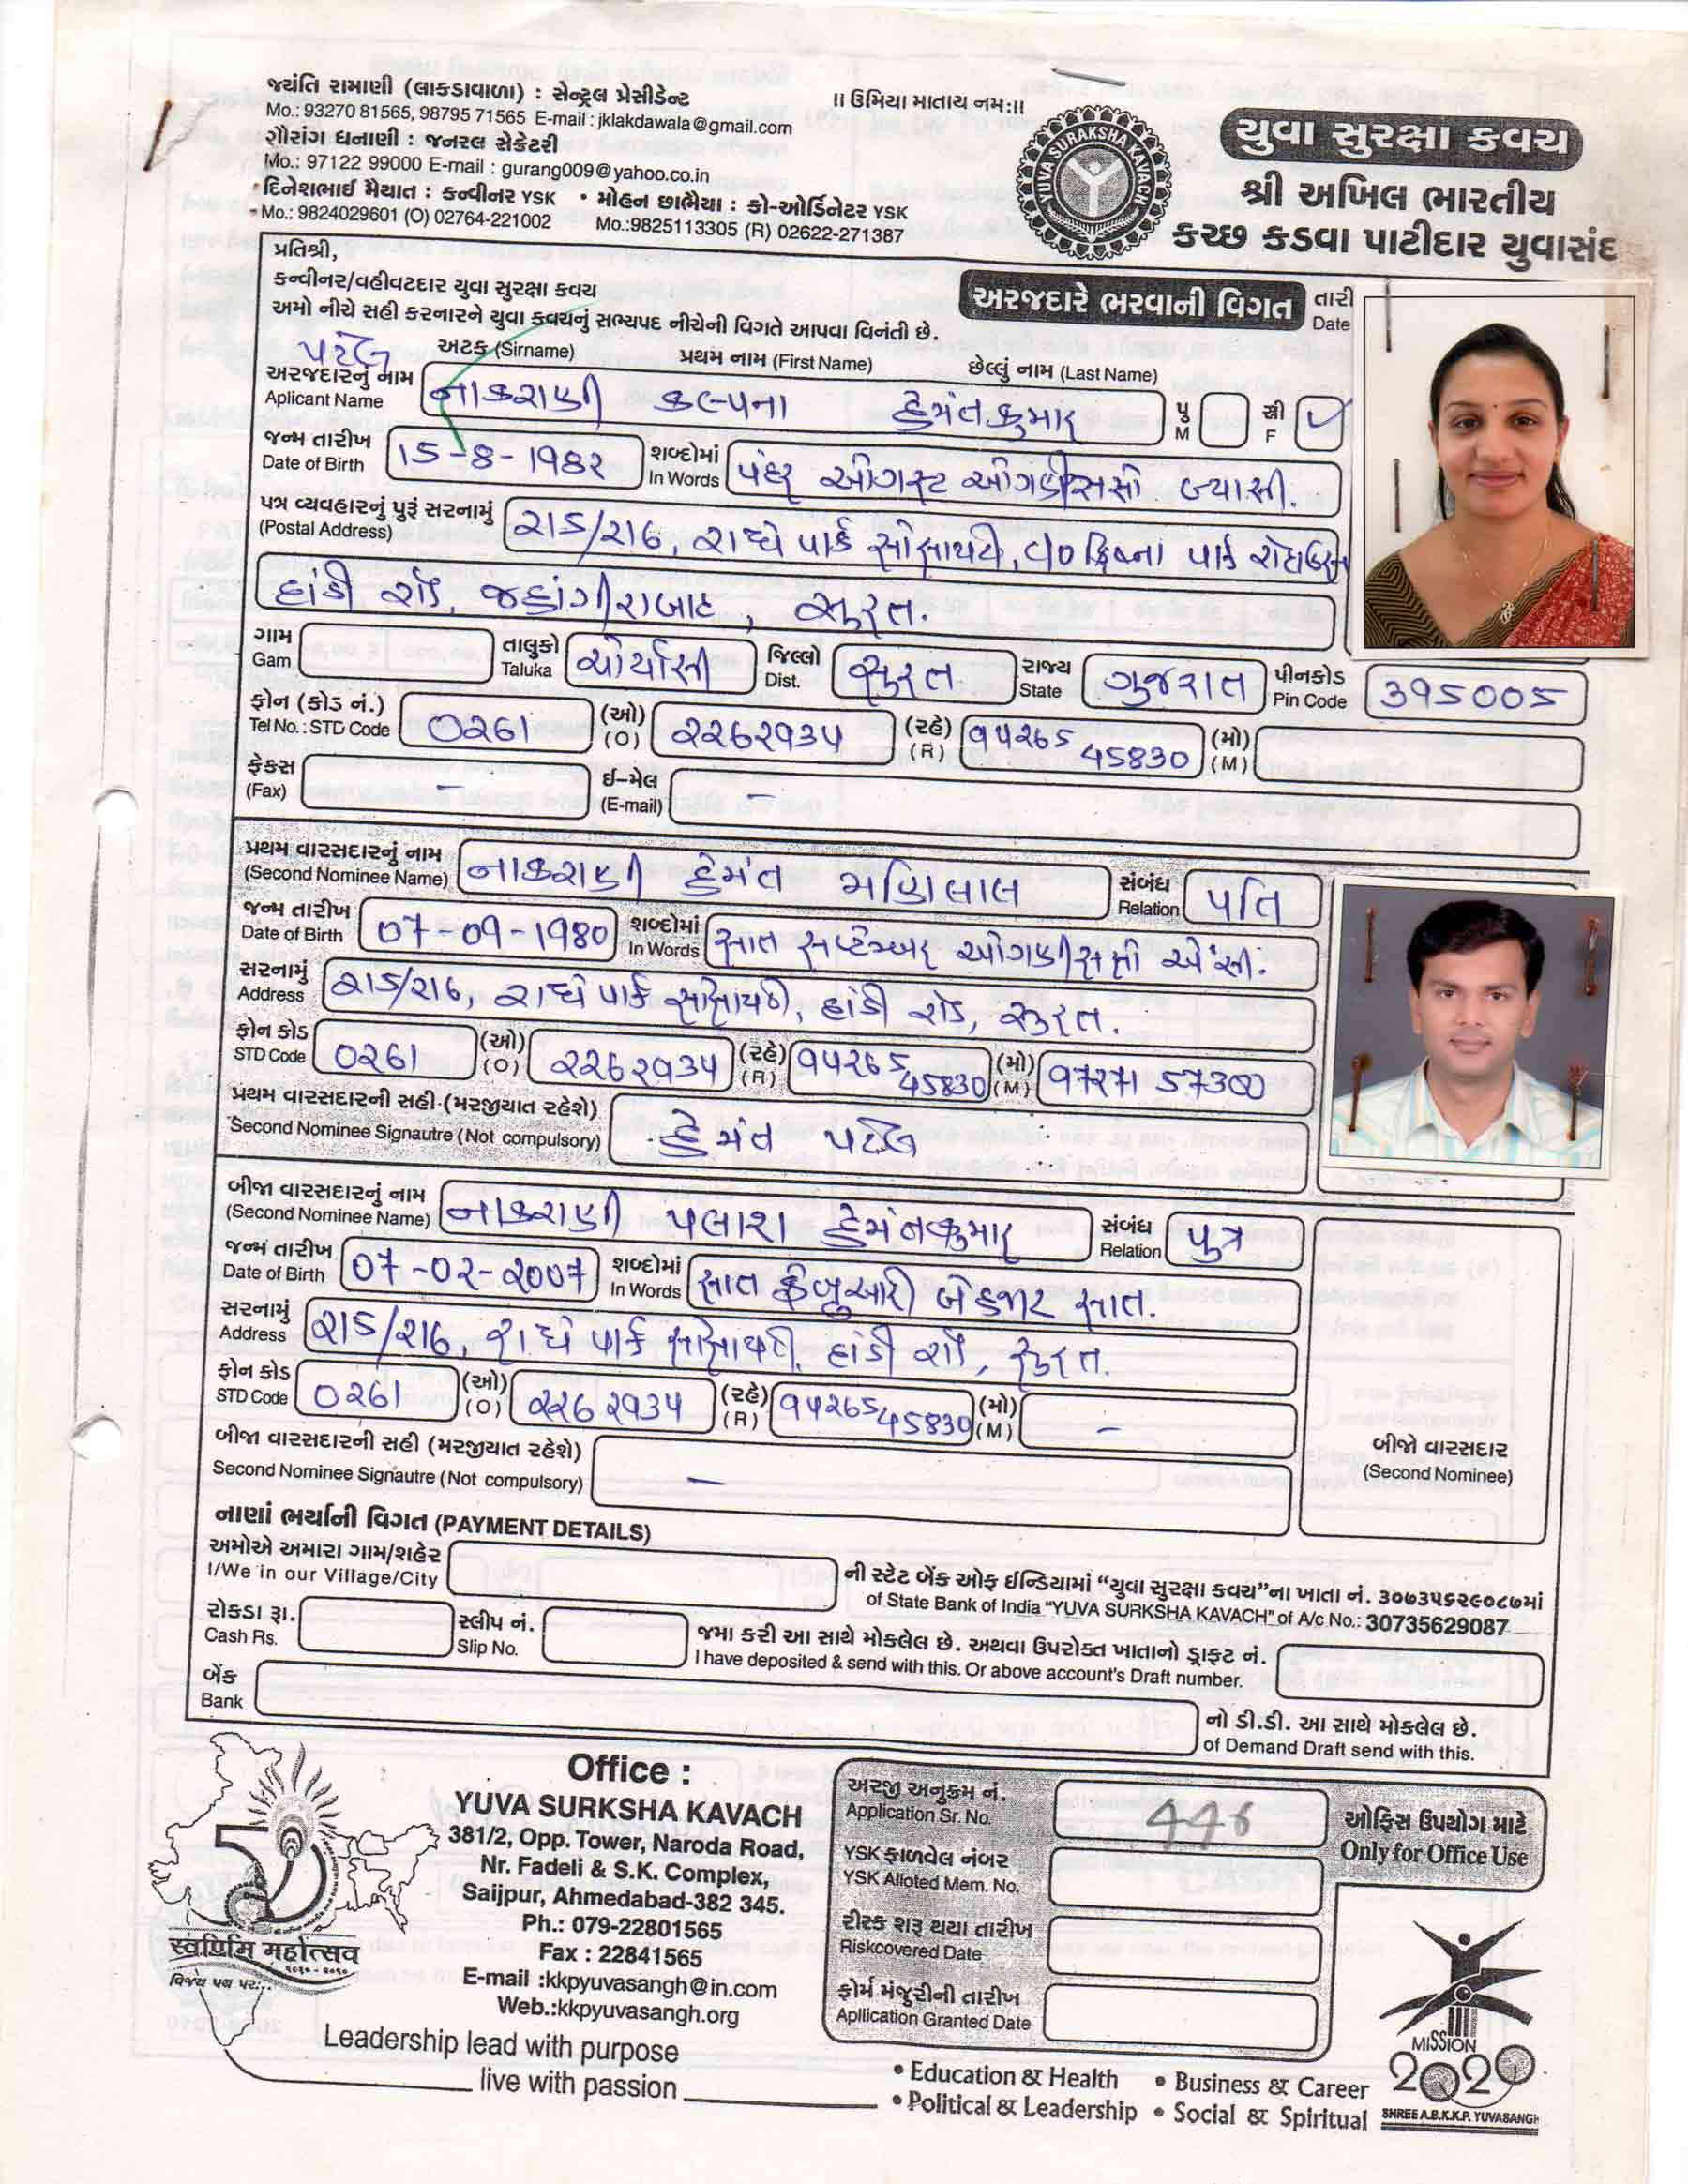 જયંતિ રામાણી (લાકડાવાળા) : સેન્ટ્રલ પ્રેસીડેન્ટ
Mo.: 93270 81565, 98795 71565 E-mail : jklakdawala@gmail.com
ગૌરાંગ ધનાણી : જનરલ સેક્રેટરી
Mo.: 97122 99000 E-mail : gurang009@yahoo.co.in
• દિનેશભાઈ મૈયાત : કન્વીનર YSK • મોહન છાભૈયા : કો-ઓર્ડિનેટર YSK
Mo.: 9824029601 (O) 02764-221002 Mo.:9825113305 (R) 02622-271387
॥ ઉમિયા માતાય નમઃ॥
YUVA SURAKSHA KAVACH
યુવા સુરક્ષા કવચ
શ્રી અખિલ ભારતીય
કચ્છ કડવા પાટીદાર યુવાસંઘ
પ્રતિશ્રી,
કન્વીનર/વહીવટદાર યુવા સુરક્ષા કવચ
અમો નીચે સહી કરનારને યુવા કવચનું સભ્યપદ નીચેની વિગતે આપવા વિનંતી છે.
અરજદારે ભરવાની વિગત
તારી
Date
પટેલ અટક (Sirname) પ્રથમ નામ (First Name) છેલ્લું નામ (Last Name)
અરજદારનું નામ
Aplicant Name નાકરાણી કલ્પના હેમંતકુમાર પુ M સ્ત્રી F ✓
જન્મ તારીખ
Date of Birth 15-8-1982 શબ્દોમાં In Words પંદર ઓગસ્ટ ઓગણીસસો બ્યાસી.
પત્ર વ્યવહારનું પુરૂં સરનામું
(Postal Address) 215/216, રાધે પાર્ક સોસાયટી, c/o ક્રિષ્ના પાર્ક
દાંડી રોડ, જહાંગીરાબાદ, સુરત.
ગામ
Gam તાલુકો Taluka ચોર્યાસી જિલ્લો Dist. સુરત રાજ્ય State ગુજરાત પીનકોડ Pin Code 395005
ફોન (કોડ નં.)
Tel No.: STD Code 0261 (ઓ) (O) 2262934 (રહે) (R) 94265 45830 (મો) (M)
ફેક્સ
(Fax) - ઈ-મેલ (E-mail) -
પ્રથમ વારસદારનું નામ
(Second Nominee Name) નાકરાણી હેમંત મણિલાલ સંબંધ Relation પતિ
જન્મ તારીખ
Date of Birth 07-09-1980 શબ્દોમાં In Words સાત સપ્ટેમ્બર ઓગણીસસો એંસી.
સરનામું
Address 215/216, રાધે પાર્ક સોસાયટી, દાંડી રોડ, સુરત.
ફોન કોડ
STD Code 0261 (ઓ) (O) 2262934 (રહે) (R) 94265 45830 (મો) (M) 97271 57300
પ્રથમ વારસદારની સહી (મરજીયાત રહેશે)
Second Nominee Signautre (Not compulsory) હેમંત પટેલ
બીજા વારસદારનું નામ
(Second Nominee Name) નાકરાણી પલાશ હેમંતકુમાર સંબંધ Relation પુત્ર
જન્મ તારીખ
Date of Birth 07-02-2007 શબ્દોમાં In Words સાત ફેબ્રુઆરી બે હજાર સાત.
સરનામું
Address 215/216, રાધે પાર્ક સોસાયટી, દાંડી રોડ, સુરત.
ફોન કોડ
STD Code 0261 (ઓ) (O) 2262934 (રહે) (R) 94265 45830 (મો) (M) -
બીજા વારસદારની સહી (મરજીયાત રહેશે)
Second Nominee Signautre (Not compulsory) -
બીજો વારસદાર
(Second Nominee)
નાણાં ભર્યાની વિગત (PAYMENT DETAILS)
અમોએ અમારા ગામ/શહેર
I/We in our Village/City
ની સ્ટેટ બેંક ઓફ ઈન્ડિયામાં “યુવા સુરક્ષા કવચ”ના ખાતા નં. ૩૦૭૩૫૬૨૯૦૮૭માં
of State Bank of India "YUVA SURKSHA KAVACH" of A/c No.: 30735629087
રોકડા રૂા.
Cash Rs.
સ્લીપ નં.
Slip No.
જમા કરી આ સાથે મોકલેલ છે. અથવા ઉપરોક્ત ખાતાનો ડ્રાફ્ટ નં.
I have deposited & send with this. Or above account's Draft number.
બેંક
Bank
નો ડી.ડી. આ સાથે મોકલેલ છે.
of Demand Draft send with this.
50
स्वर्णिम महोत्सव
વિજય પથ પર...
Office :
YUVA SURKSHA KAVACH
381/2, Opp. Tower, Naroda Road,
Nr. Fadeli & S.K. Complex,
Saijpur, Ahmedabad-382 345.
Ph.: 079-22801565
Fax : 22841565
E-mail :kkpyuvasangh@in.com
Web.:kkpyuvasangh.org
Leadership lead with purpose
live with passion
અરજી અનુક્રમ નં.
Application Sr. No. 446
YSK ફાળવેલ નંબર
YSK Alloted Mem. No.
રીસ્ક શરૂ થયા તારીખ
Riskcovered Date
ફોર્મ મંજુરીની તારીખ
Apllication Granted Date
ઓફિસ ઉપયોગ માટે
Only for Office Use
• Education & Health • Business & Career
• Political & Leadership • Social & Spiritual
MISSION
2020
SHREE A.B.K.K.P. YUVASANGH